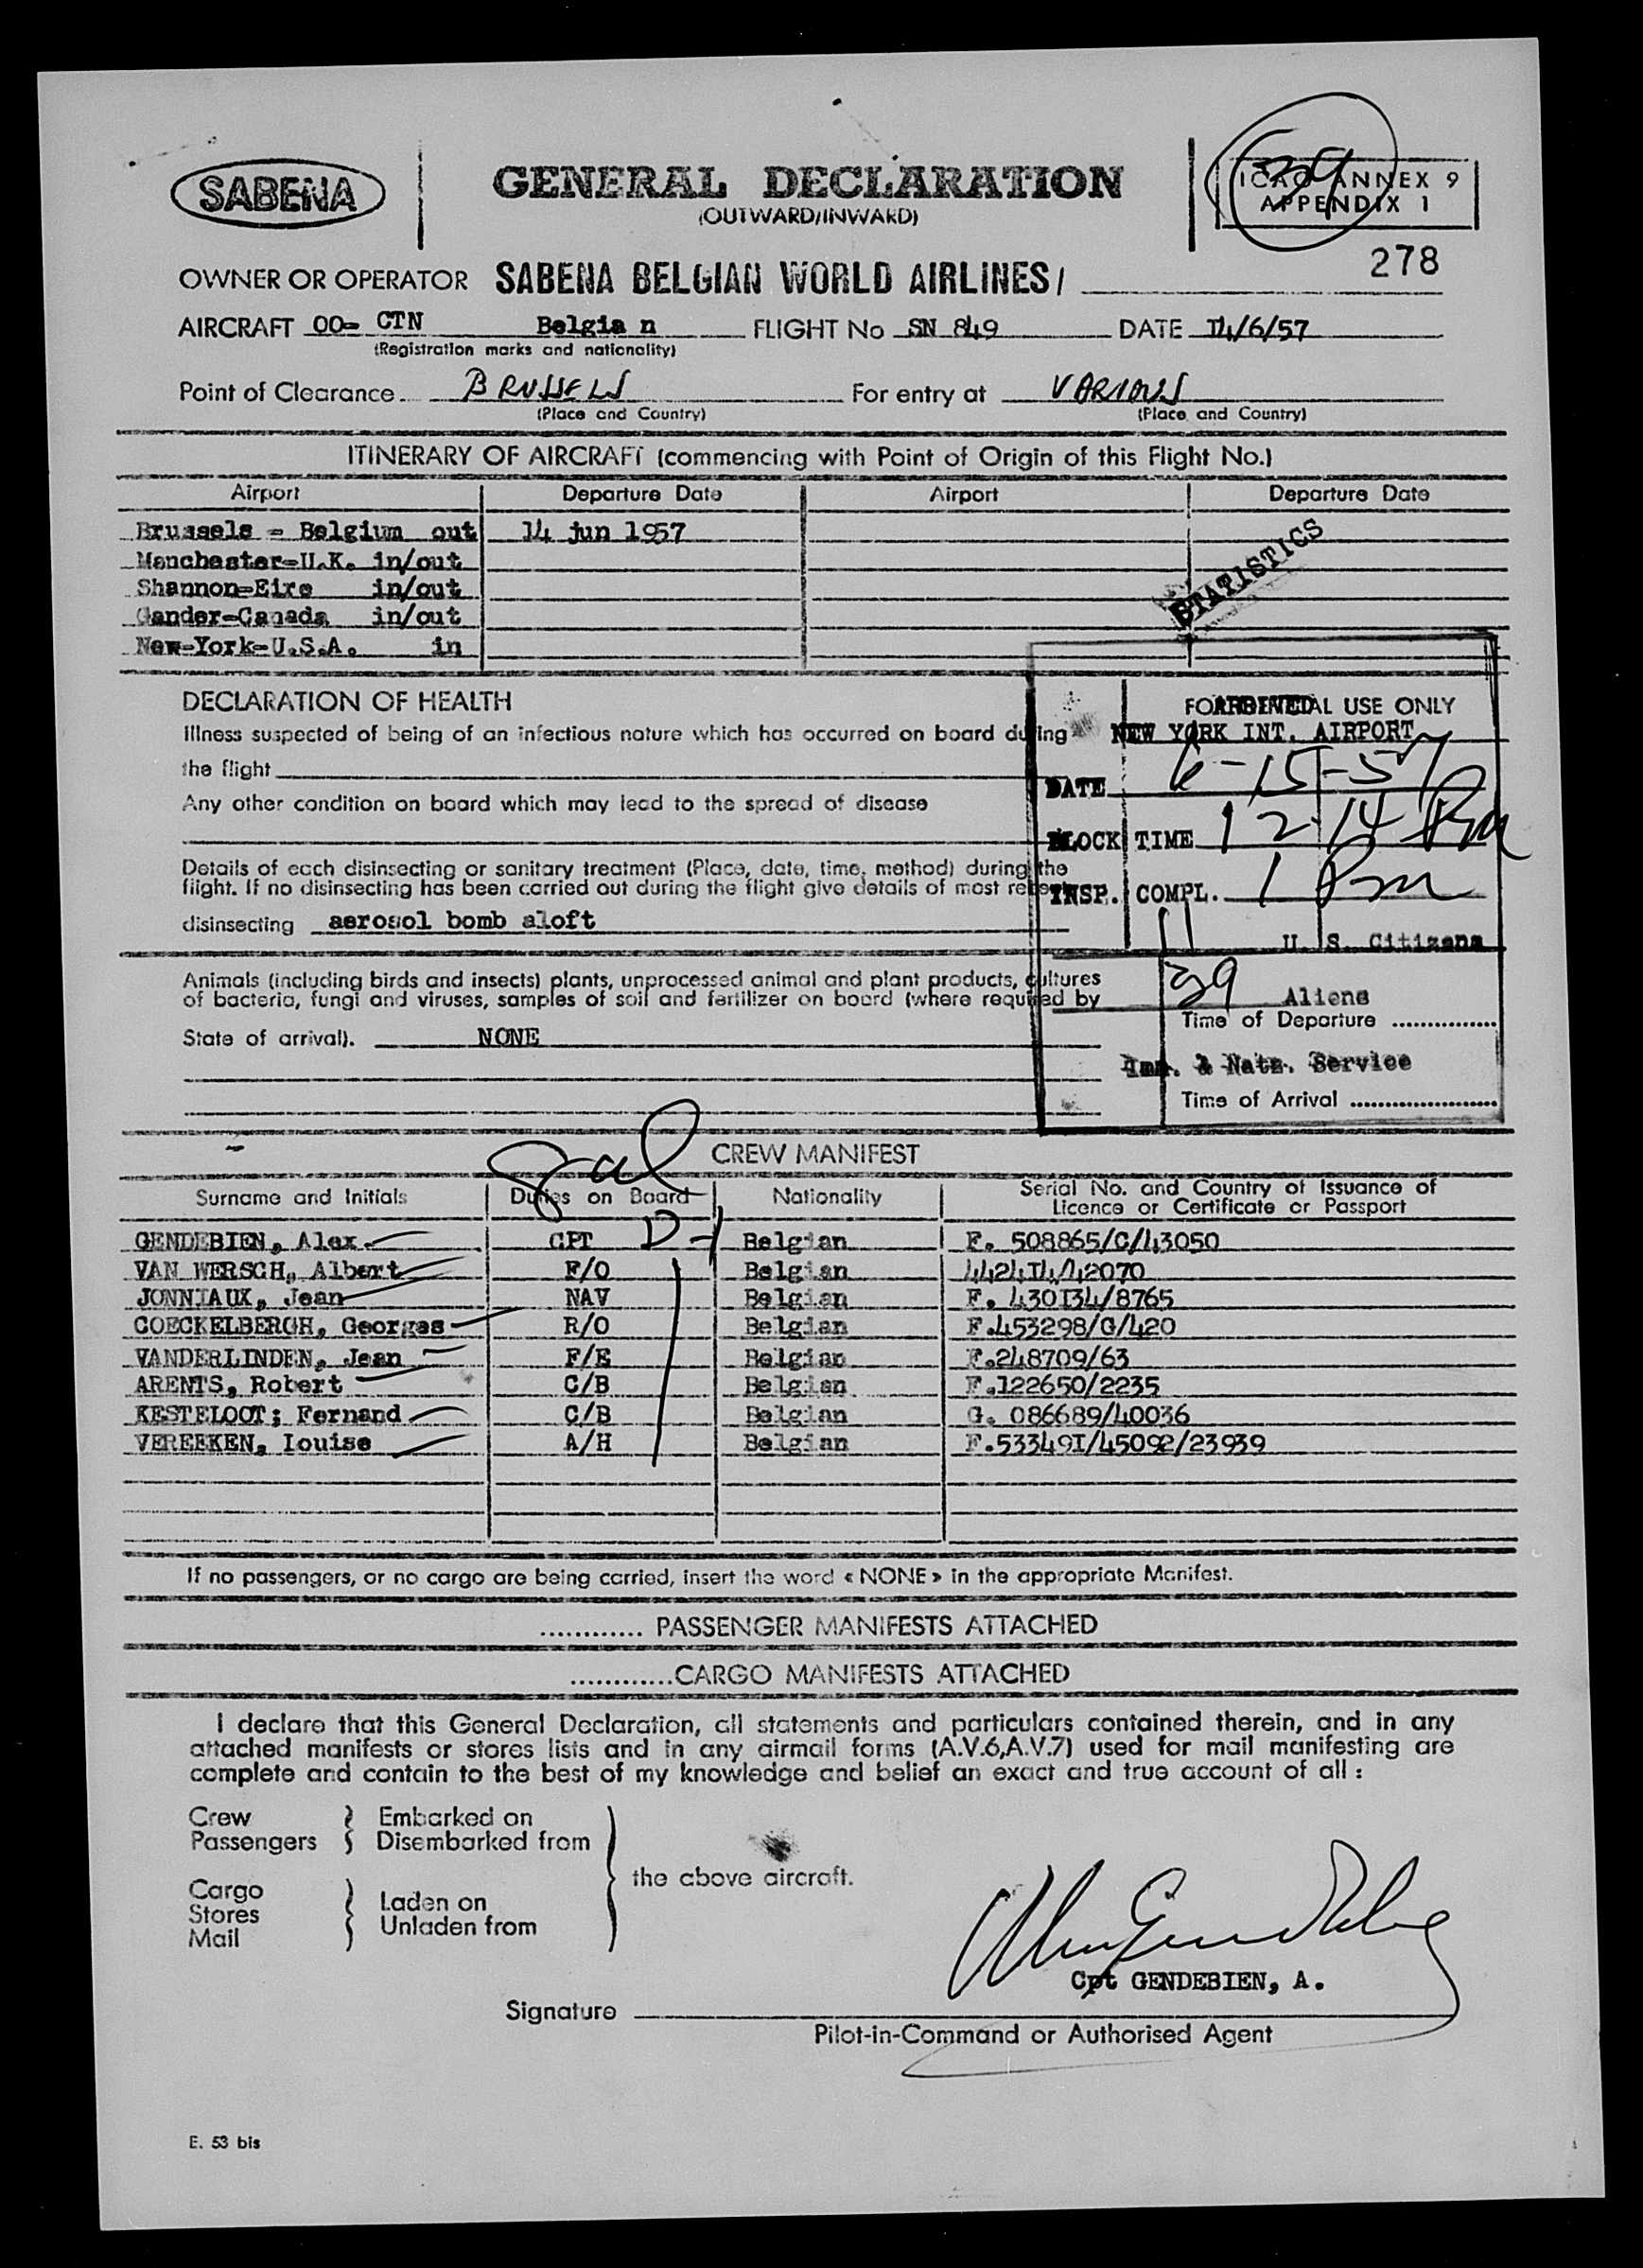 SABENA
GENERAL DECLARATION
(OUTWARD/INWARD)
ICAO ANNEX 9
APPENDIX 1
278
OWNER OR OPERATOR SABENA BELGIAN WORLD AIRLINES/
AIRCRAFT OO= CTN Belgia n FLIGHT No SN 849 DATE I4/6/57
(Registration marks and nationality)
Point of Clearance BRUSSELS For entry at VARIOUS
(Place and Country) (Place and Country)
ITINERARY OF AIRCRAFT (commencing with Point of Origin of this Flight No.)
Airport Departure Date Airport Departure Date
Brussels = Belgium out 14 jun 1957
Manchester=U.K. in/out
Shannon=Eire in/out
Gander=Canada in/out
New=York=U.S.A. in
STATISTICS
DECLARATION OF HEALTH
FOR OFFICIAL USE ONLY
ARRIVED
Illness suspected of being of an infectious nature which has occurred on board during
NEW YORK INT. AIRPORT
the flight
DATE 6-15-57
Any other condition on board which may lead to the spread of disease
BLOCK TIME 12:14 Pm
Details of each disinsecting or sanitary treatment (Place, date, time, method) during the
flight. If no disinsecting has been carried out during the flight give details of most recent
INSP. COMPL. 1 Pm
disinsecting aerosol bomb aloft
11 U. S. Citizens
Animals (including birds and insects) plants, unprocessed animal and plant products, cultures
of bacteria, fungi and viruses, samples of soil and fertilizer on board (where required by
39 Aliens
Time of Departure
State of arrival). NONE
Imm. & Natz. Service
Time of Arrival
CREW MANIFEST
Surname and Initials Duties on Board Nationality Serial No. and Country of Issuance of
Licence or Certificate or Passport
GENDEBIEN, Alex CPT D-1 Belgian F. 508865/C/43050
VAN WERSCH, Albert F/O Belgian 4424I4/42070
JONNIAUX, Jean NAV Belgian F. 430I34/8765
COECKELBERGH, Georges R/O Belgian F.453298/G/420
VANDERLINDEN, Jean F/E Belgian F.248709/63
ARENTS, Robert C/B Belgian F.122650/2235
KESTELOOT; Fernand C/B Belgian G. 086689/40036
VEREEKEN, Iouise A/H Belgian F.53349I/45092/23939
If no passengers, or no cargo are being carried, insert the word « NONE » in the appropriate Manifest.
............ PASSENGER MANIFESTS ATTACHED
............CARGO MANIFESTS ATTACHED
I declare that this General Declaration, all statements and particulars contained therein, and in any
attached manifests or stores lists and in any airmail forms (A.V.6,A.V.7) used for mail manifesting are
complete and contain to the best of my knowledge and belief an exact and true account of all :
Crew Embarked on
Passengers Disembarked from
the above aircraft.
Cargo Laden on
Stores Unladen from
Mail
Cpt GENDEBIEN, A.
Signature
Pilot-in-Command or Authorised Agent
E. 53 bis